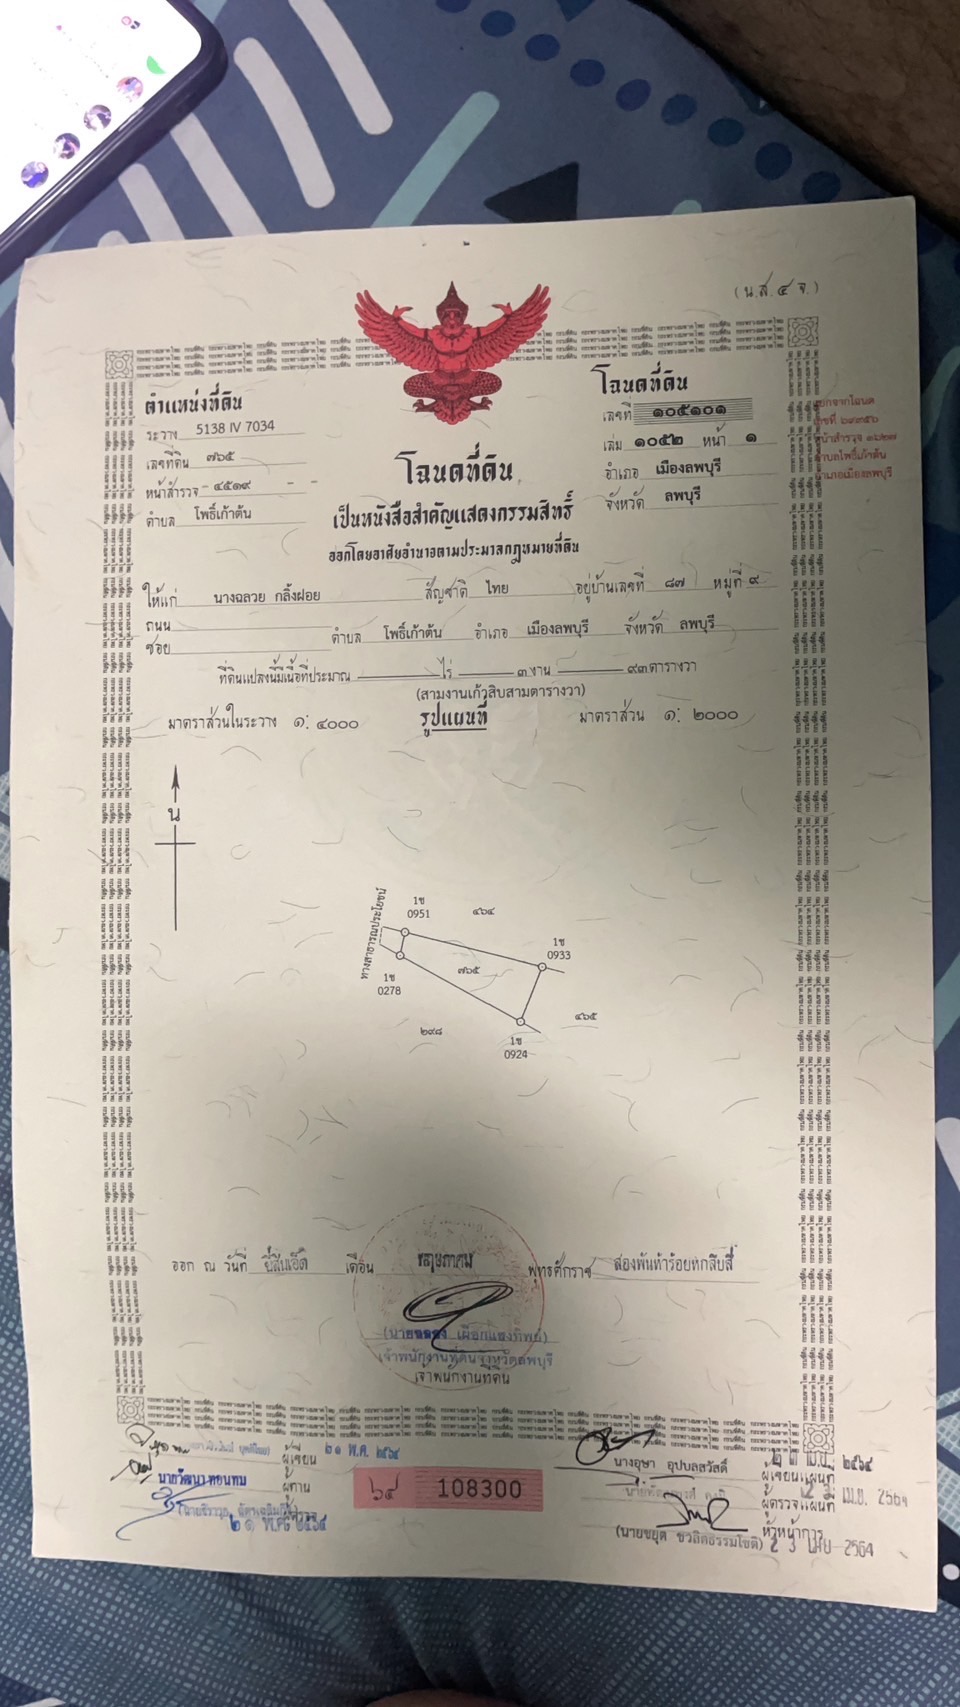 (น.ส.๔ จ.)
ตำแหน่งที่ดิน
ระวาง 5138 IV 7034
เลขที่ดิน ๗๖๕
หน้าสำรวจ - ๔๕๑๙ - -
ตำบล โพธิ์เก้าต้น
โฉนดที่ดิน
เลขที่ ๑๐๕๑๐๑
เล่ม ๑๐๕๒ หน้า ๑
อำเภอ เมืองลพบุรี
จังหวัด ลพบุรี
แยกจากโฉนด
เลขที่ ๖๙๓๕๖
หน้าสำรวจ ๑๖๒๗
ตำบลโพธิ์เก้าต้น
อำเภอเมืองลพบุรี
โฉนดที่ดิน
เป็นหนังสือสำคัญแสดงกรรมสิทธิ์
ออกโดยอาศัยอำนาจตามประมวลกฎหมายที่ดิน
ให้แก่ นางฉลวย กลิ้งฝอย สัญชาติ ไทย อยู่บ้านเลขที่ ๘๗ หมู่ที่ ๙
ถนน
ซอย ตำบล โพธิ์เก้าต้น อำเภอ เมืองลพบุรี จังหวัด ลพบุรี
ที่ดินแปลงนี้มีเนื้อที่ประมาณ ไร่ ๓ งาน ๙๓ ตารางวา
(สามงานเก้าสิบสามตารางวา)
มาตราส่วนในระวาง ๑: ๔๐๐๐ รูปแผนที่ มาตราส่วน ๑: ๒๐๐๐
น
ทางสาธารณประโยชน์
1ช
0951
๔๖๔
1ช
0933
๗๖๕
1ช
0278
๔๖๕
๒๙๘
1ช
0924
ออก ณ วันที่ ยี่สิบเอ็ด เดือน พฤษภาคม พุทธศักราช สองพันห้าร้อยหกสิบสี่
เผือกแสงทิพย์)
เจ้าพนักงานที่ดินจังหวัดลพบุรี
เจ้าพนักงานที่ดิน
ผู้เขียน ๒๑ พ.ค. ๒๕๖๔
นายวัฒนา ทอนทม ผู้ทาน
ผู้ตรวจ
๒๑ พ.ค. ๒๕๖๔
๖๔ 108300
นางอุษา อุปบลสวัสดิ์ ผู้เขียนแผนที่
ผู้ตรวจแผนที่ เม.ย. 2564
หัวหน้าการ
(นายชยุต ชวลิตธรรมโชติ) 2 3 เม.ย. 2564